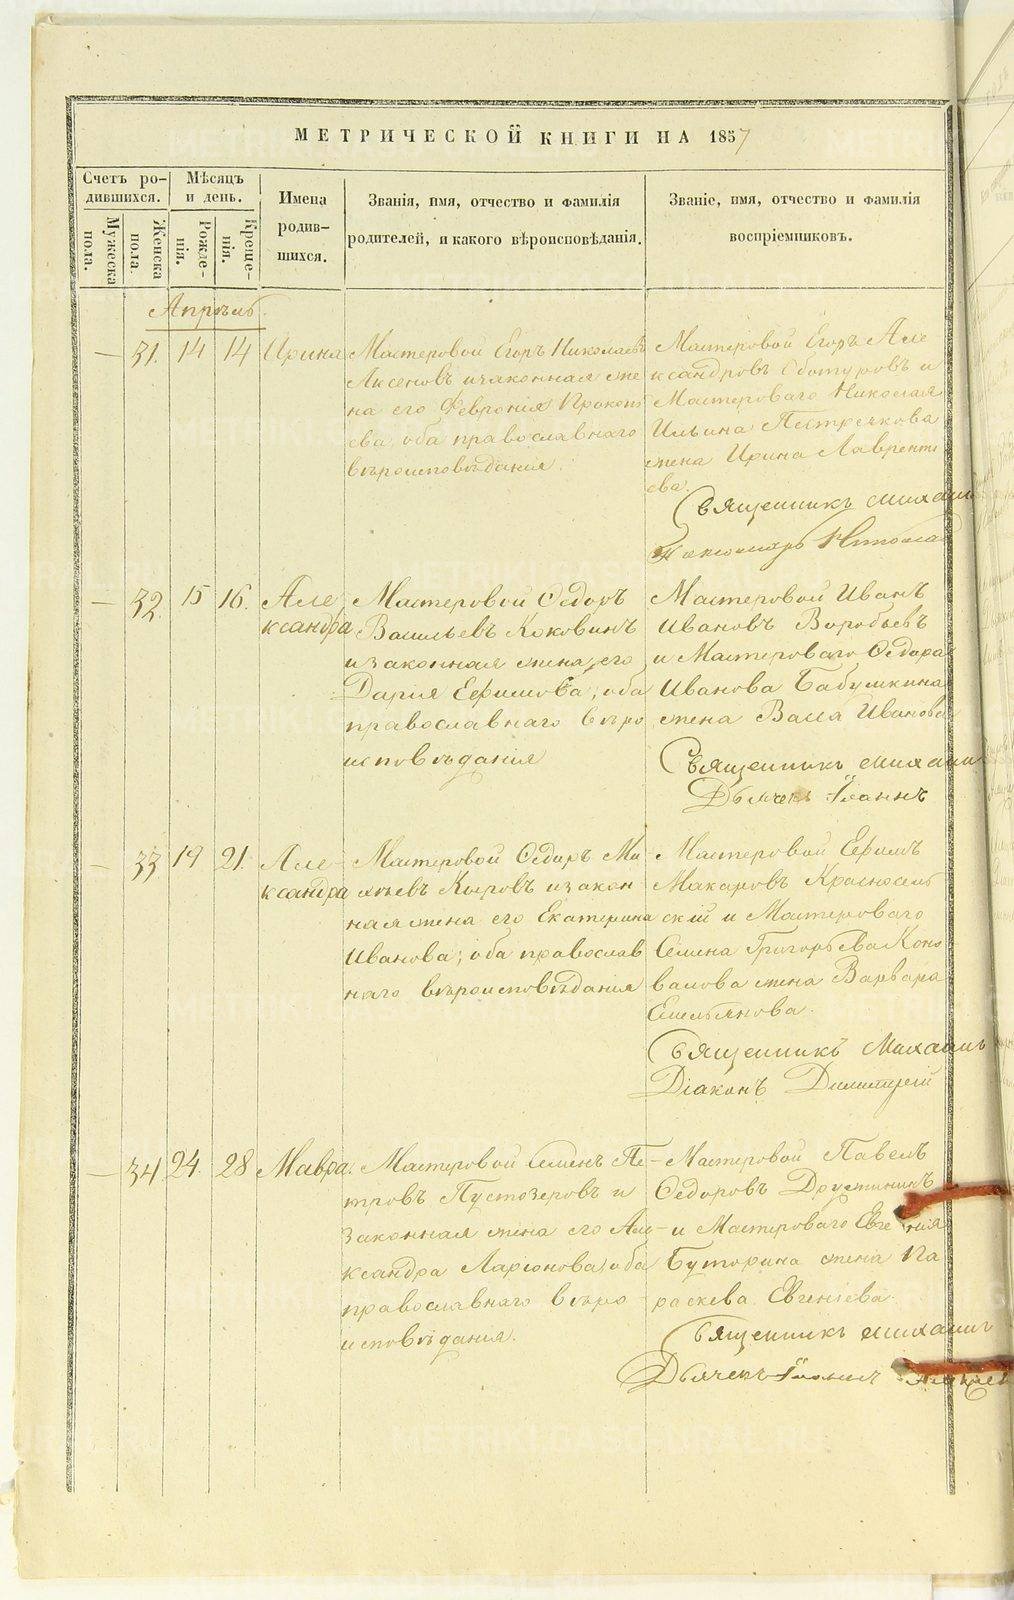 МЕТРИЧЕСКОЙ КНИГИ НА 1857
Счетъ ро-
дившихся.
Мѣсяцъ
и день.
Имена
родив-
шихся.
Званія, имя, отчество и фамилія
родителей, и какого вѣроисповѣданія.
Званіе, имя, отчество и фамилія
воспріемниковъ.
Мужеска
пола.
Женска
пола.
Рожде-
нія.
Креще-
нія.
Апрѣль.
— 31. 14 14 Ирина
Мастеровой Егоръ Николаевъ
Аксеновъ и законная же
на его Феврония Прокопь
ева, оба православнаго
вѣроисповѣдания.
Мастеровой Егоръ Але
ксандровъ и
Мастероваго Николая
Ильина Пестрекова
жена Ирина Лавренть
ева.
Священникъ Михаилъ
Пономарь
— 32. 15 16. Але
ксандра
Мастеровой Ѳедоръ
Васильевъ Коковинъ
и законная жена его
Дария Ефимова, оба
православнаго вѣро
исповѣдания
Мастеровой Иванъ
Ивановъ Воробьевъ
и Мастероваго Ѳедора
Иванова Бабушкина
жена Васса Иванова
Священникъ Михаилъ
Дьячекъ Іоаннъ
— 33 19 21. Але-
ксандра
Мастеровой Ѳедоръ Ми-
хѣевъ Кыровъ и закон
ная жена его Екатерина
Иванова; оба православ
наго вѣроисповѣдания
Мастеровой Ефимъ
Макаровъ Красносель
скій и Мастероваго
Семена Григорьева Коно-
валова жена Варвара
Емельянова.
Священникъ Михаилъ
Діаконъ Димитрій
— 34. 24. 28 Мавра.
Мастеровой Семенъ Пе-
тровъ Пустозеровъ и
законная жена его Але-
ксандра Ларіонова, оба
православнаго вѣро-
исповѣдания.
Мастеровой Павелъ
Ѳедоровъ Дружининъ
и Мастероваго Евгения
Буторина жена Па
раскева Евгеніева.
Священникъ Михаилъ
Дьячекъ Іоаннъ
METRIKI.GASO-URAL.RU